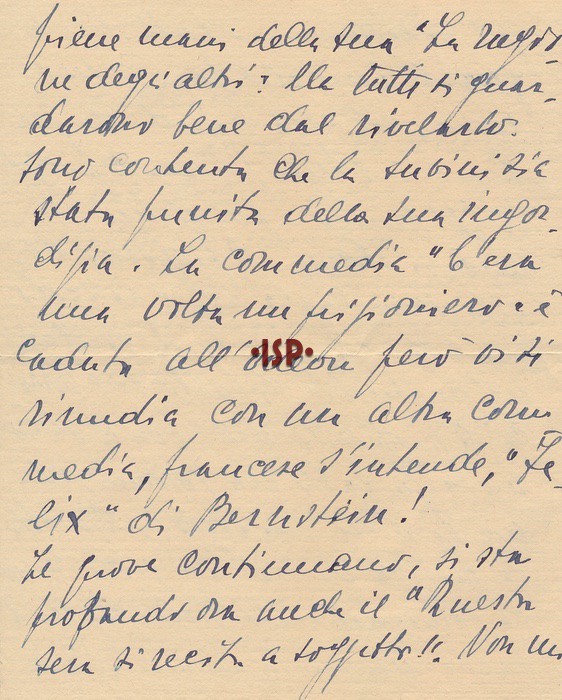 piene mani della sua "La ragio-
ne degli altri". Ma tutti si guar-
darono bene dal rivelarlo.
Sono contenta che la Suvini sia
stata punita della sua ingor-
digia. La commedia "C'era
una volta un prigioniero" è
caduta all'Odeon però vi si
rimedia con un altra com
media, francese s'intende, "Fe-
lix" di Bernstein!
Le prove continuano, si sta
provando ora anche il "Questa
sera si recita a soggetto". Non mi
·ISP·